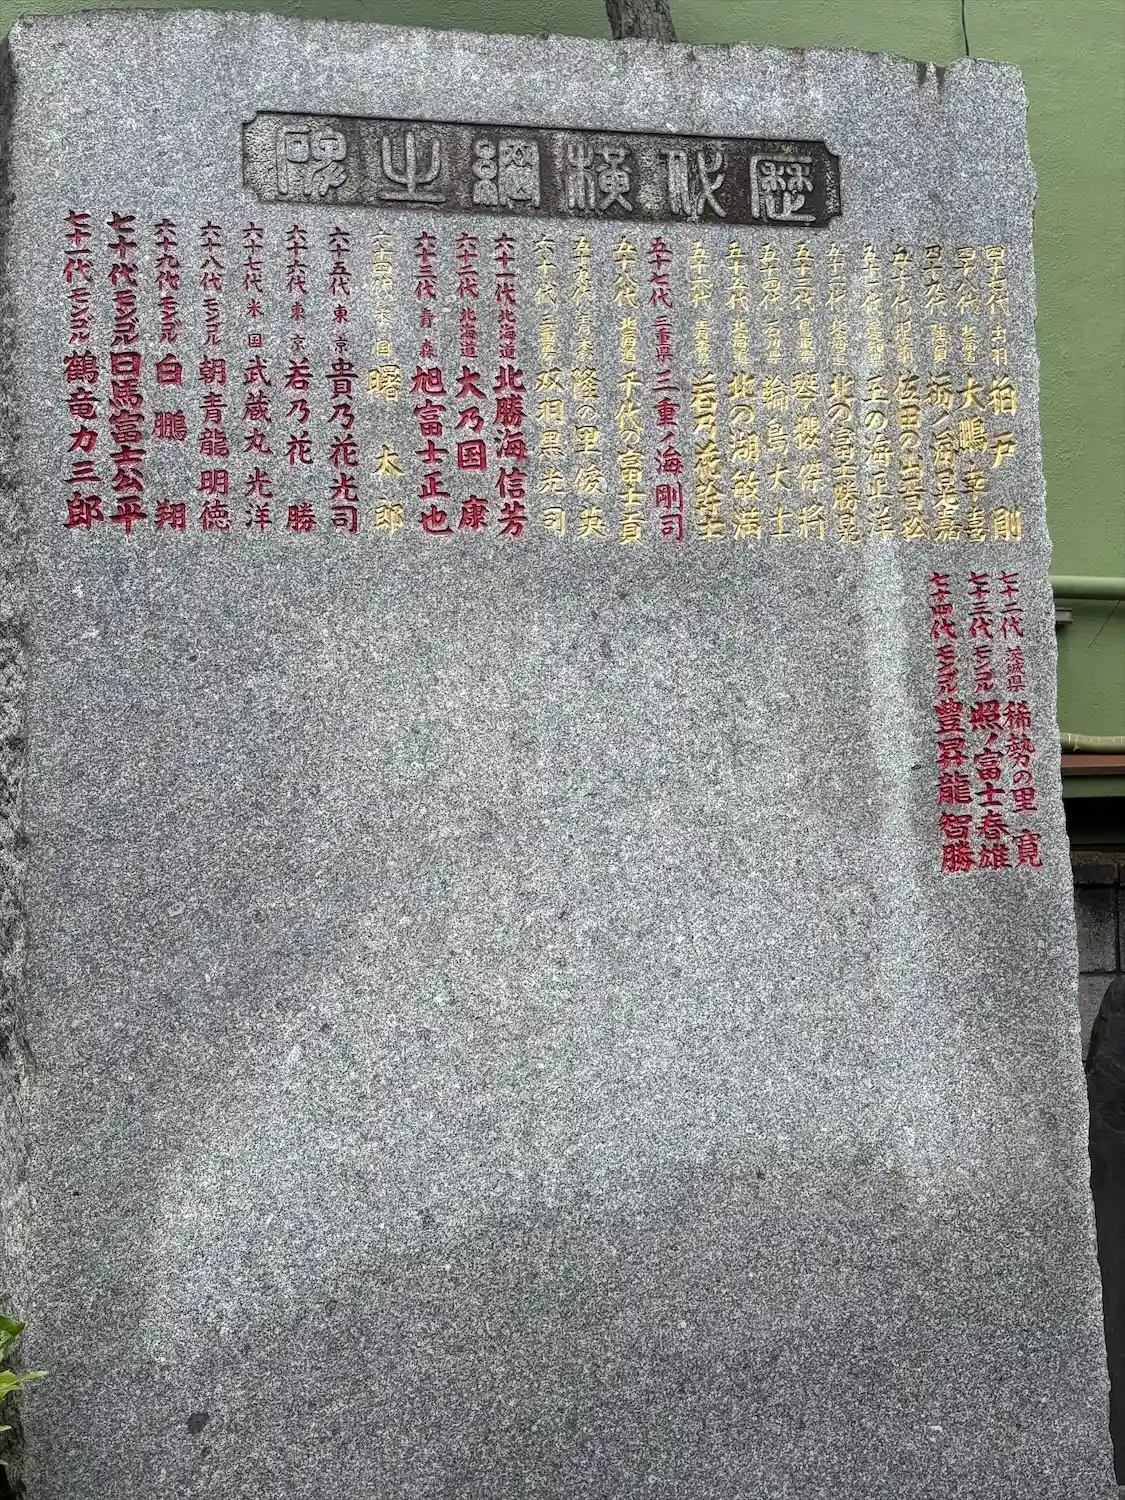 歴代横綱之碑
四十七代 出羽 柏戸 剛
四十八代 北海道 大鵬幸喜
四十九代 栃ノ海晃嘉
五十代 長崎県 佐田の山晋松
五十一代 愛知県 玉の海正洋
五十二代 北海道 北の富士勝晃
五十三代 鳥取県 琴櫻傑將
五十四代 石川県 輪島大士
五十五代 北海道 北の湖敏満
五十六代 青森県 若乃花幹士
五十七代 三重県 三重ノ海剛司
五十八代 北海道 千代の富士貢
五十九代 青森 隆の里俊英
六十代 三重県 双羽黒光司
六十一代 北海道 北勝海信芳
六十二代 北海道 大乃国 康
六十三代 青森 旭富士正也
六十四代 米国 曙 太郎
六十五代 東京 貴乃花光司
六十六代 東京 若乃花 勝
六十七代 米国 武蔵丸光洋
六十八代 モンゴル 朝青龍明徳
六十九代 モンゴル 白鵬 翔
七十代 モンゴル 日馬富士公平
七十一代 モンゴル 鶴竜力三郎
七十二代 茨城県 稀勢の里 寛
七十三代 モンゴル 照ノ富士春雄
七十四代 モンゴル 豊昇龍 智勝